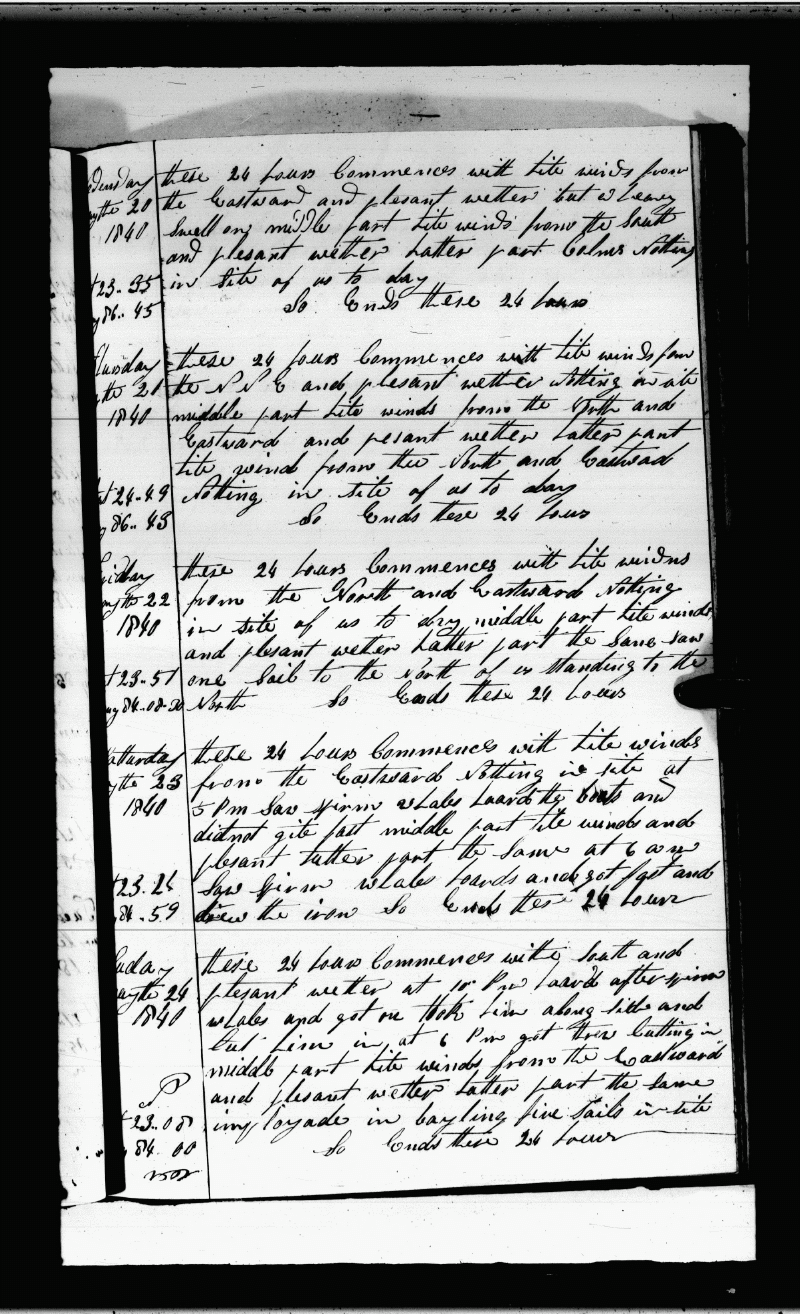 these 24 hours Commences with lite winds from
the Eastward and plesant wether but a heavy
Swell on middle part lite winds from the South
and plesant wether Latter part Calms Nothing
in site of us to day
So Ends these 24 hours
20
1840
23-35
86-45
these 24 hours Commences with lite winds from
the N N E and plesant wether Nothing in site
middle part lite winds from the North and
Eastward and pesant wether Latter part
lite wind from the North and Eastwad
Nothing in site of us to day
So Ends these 24 hours
21
1840
24-49
86-43
these 24 hours Commences with lite winds
from the North and Eastward Nothing
in site of us to day middle part lite winds
and plesant wether Latter part the Same saw
one Sail to the North of us Standing to the
North So Ends these 24 hours
22
1840
23-51
84-08-30
these 24 hours Commences with lite winds
from the Eastward Nothing in site at
5 Pm Saw Spirm whales loard the bots and
did not gite fast middle part lite winds and
plesant latter part the Same at 6 am
Saw Spirm whales loards and got fast and
drew the iron So Ends these 24 hours
Satturday
the 23
1840
23-24
84-59
these 24 hours Commences with South and
plesant wether at Pm loard after spirm
whales and got one took him along side and
Cut him in at 6 Pm got threw Cutting in
middle part lite winds from the Eastward
and plesant wether Latter part the Same
imployade in bayling five Sails in site
So Ends these 24 hours
the 24
1840
23-08
84 00